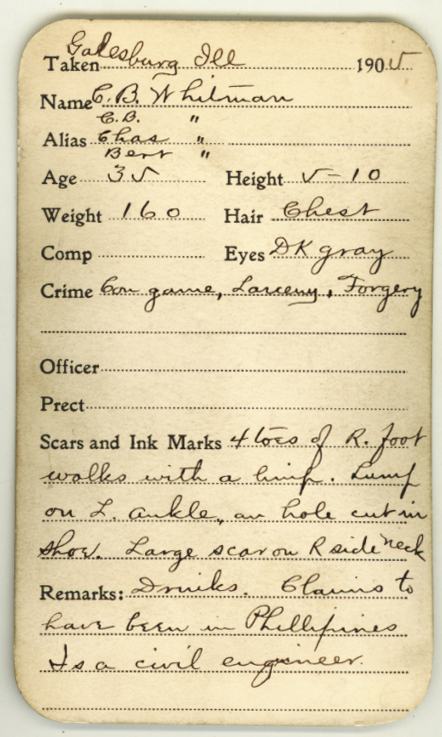 Taken Galesburg Ill 1905
Name C. B. Whitman
C. B. "
Alias Chas "
Bert "
Age 35 Height 5-10
Weight 160 Hair Chest
Comp Eyes DK gray
Crime Con game, Larceny, Forgery
Officer
Prect
Scars and Ink Marks 4 toes of R. foot
walks with a limp. Lump
on L. ankle, an hole cut in
shoe. Large scar on R side neck
Remarks: Drinks. Claims to
have been in Phillipines
Is a civil engineer.